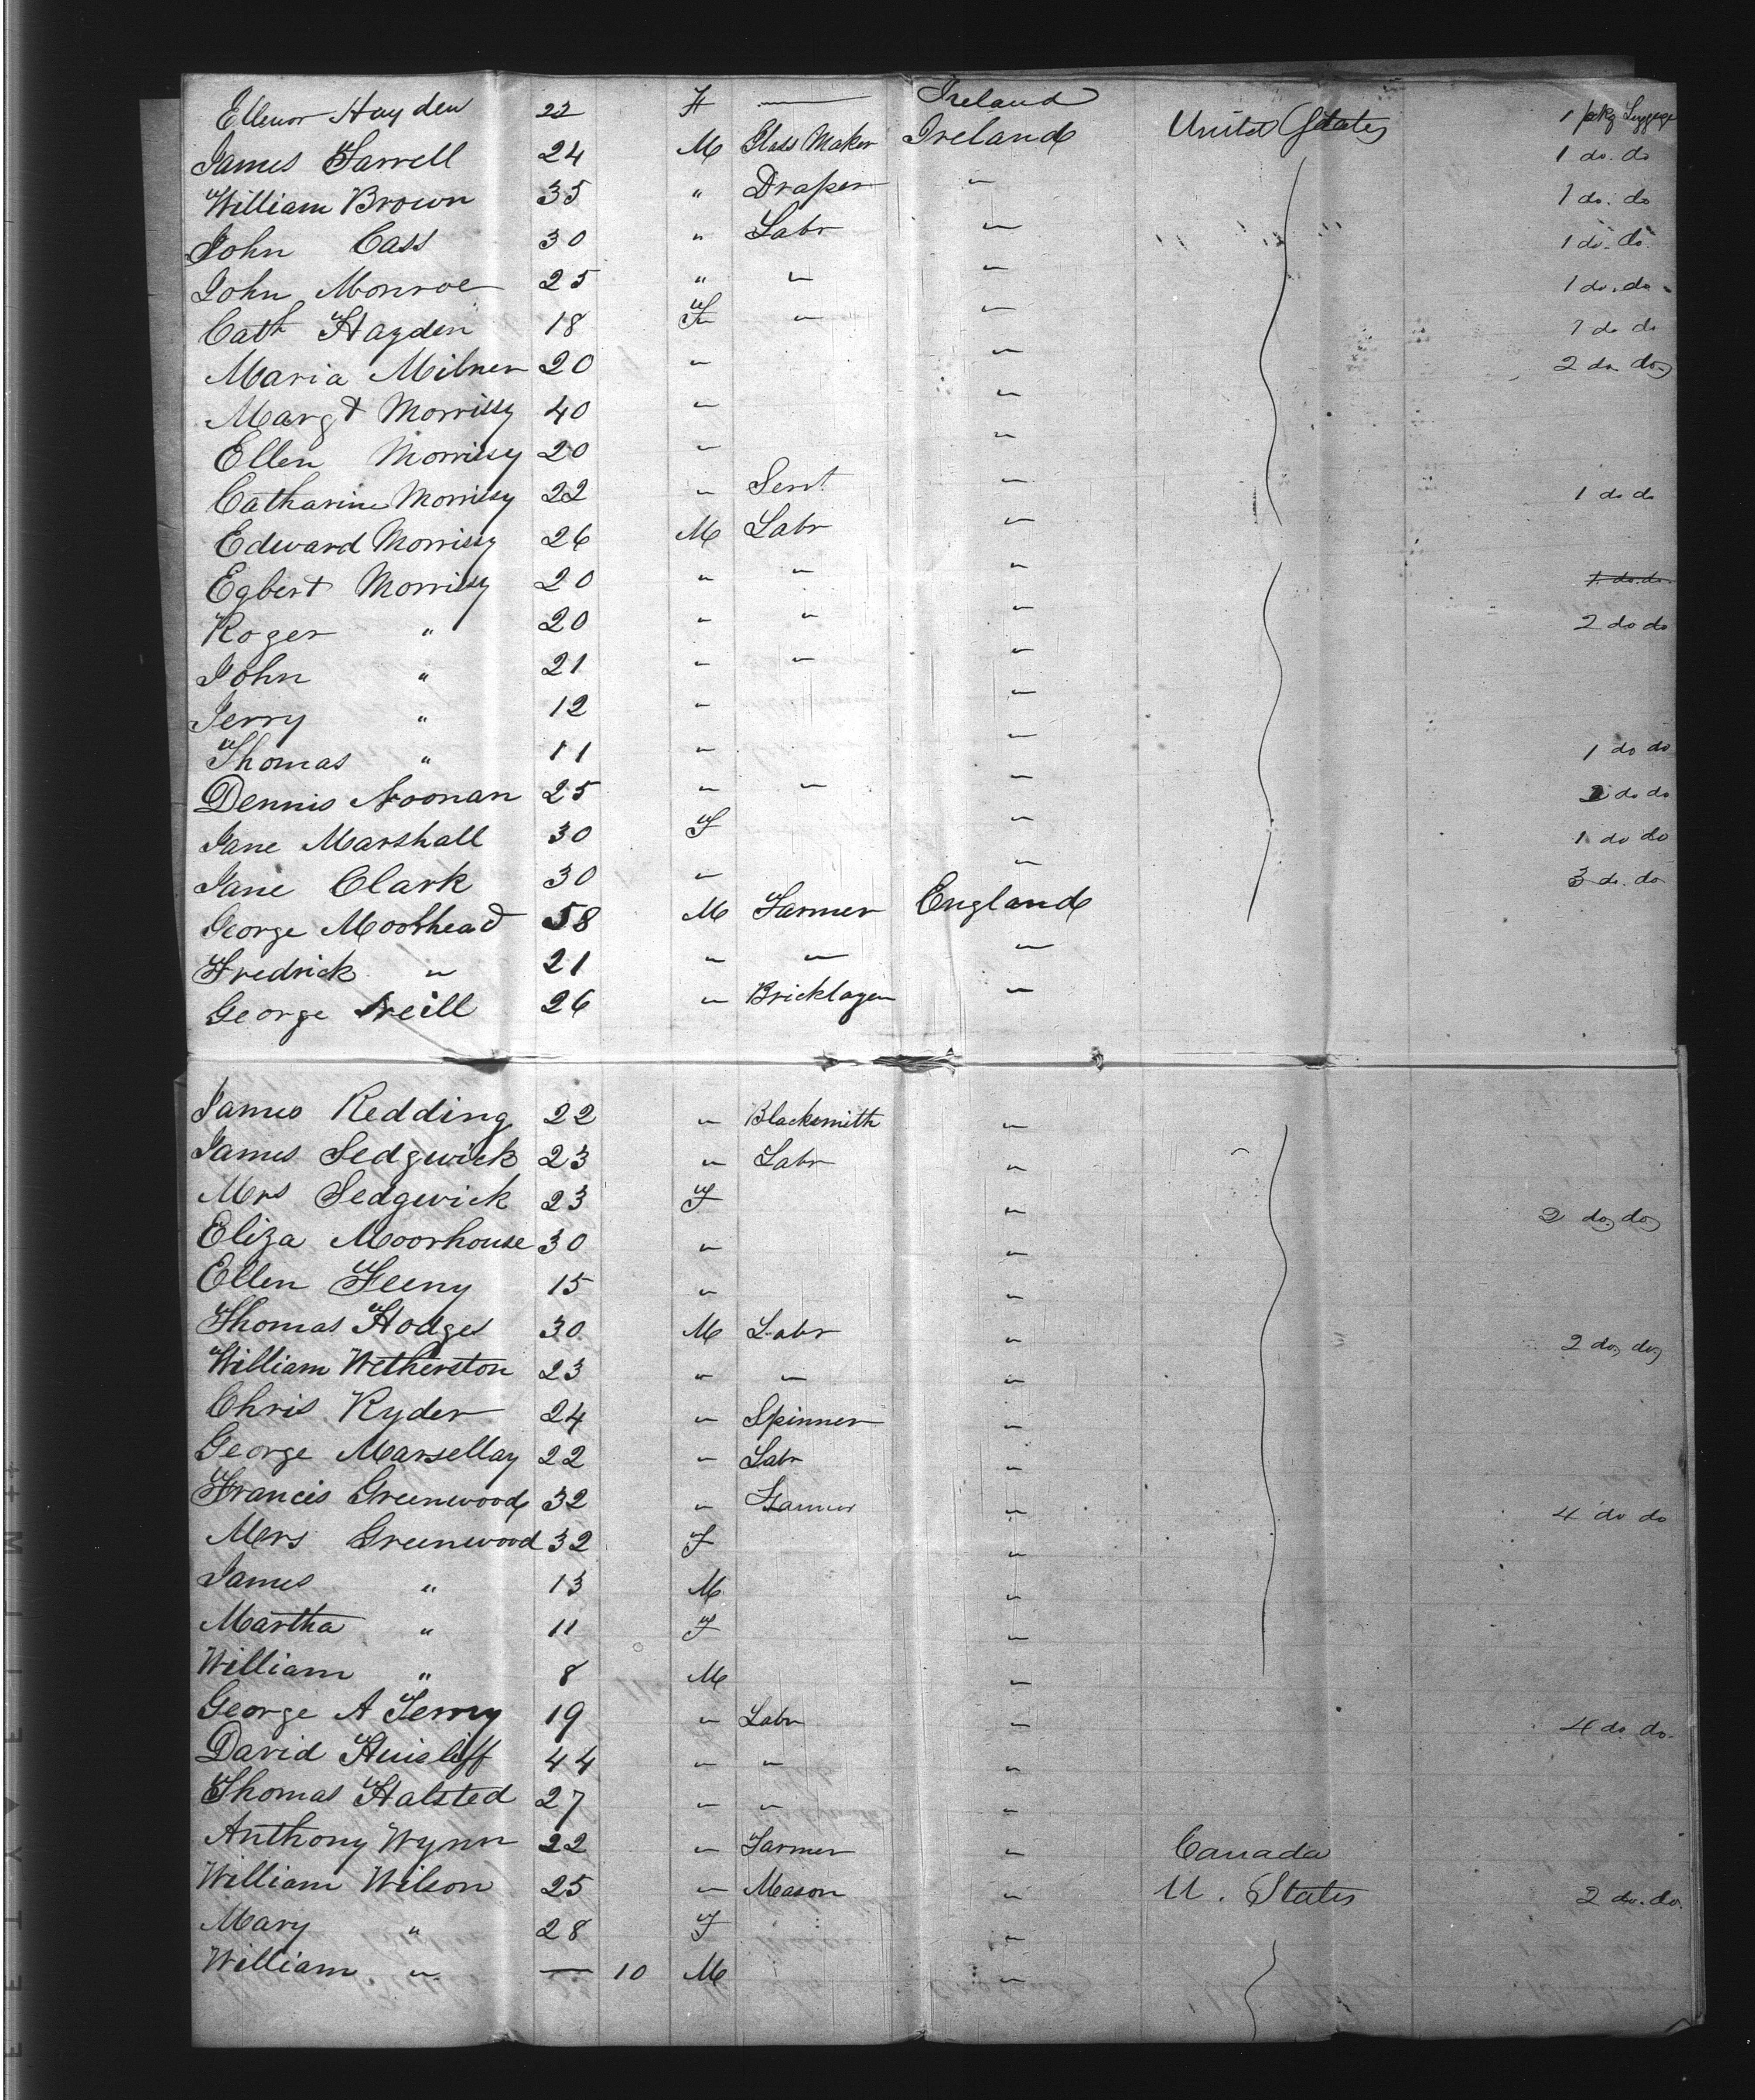 Ellenor Hayden 22 F — Ireland 1 pkg Luggage
James Farrell 24 M Glass Maker Ireland United States 1 do. do
William Brown 35 " Draper " 1 do. do
John Cass 30 " Labr " 1 do. do.
John Monroe 25 " " " 1 do. do.
Cath Hayden 18 F " " 1 do do
Maria Milner 20 " " 2 do do
Margt Morrissy 40 " "
Ellen Morrissy 20 " "
Catharine Morrissy 22 " Servt " 1 do do
Edward Morrissy 26 M Labr "
Egbert Morrissy 20 " " " 1. do. do.
Roger " 20 " " " 2 do do
John " 21 " " "
Jerry " 12 " "
Thomas " 11 " " 1 do do
Dennis Noonan 25 " " " do do
Jane Marshall 30 F " 1 do do
Jane Clark 30 " " 3 do. do
George Moorhead 58 M Farmer England
Fredrick " 21 " " "
George Neill 26 " Bricklayer "
James Redding 22 " Blacksmith "
James Sedgwick 23 " Labr "
Mrs Sedgwick 23 F " 2 do, do,
Eliza Moorhouse 30 " "
Ellen Feeny 15 " "
Thomas Hodges 30 M Labr " 2 do, do,
William Wetherston 23 " " "
Chris Ryder 24 " Spinner "
George Marsellay 22 " Labr "
Francis Greenwood 32 " Farmer " 4 do do
Mrs Greenwood 32 F "
James " 13 M "
Martha " 11 F "
William " 8 M "
George A 19 " Labr " 4 do do.
David 44 " " "
Thomas Halsted 27 " " "
Anthony Wynn 22 " Farmer " Canada
William Wilson 25 " Mason " U. States 2 do. do.
Mary " 28 F "
William " — 10 M "